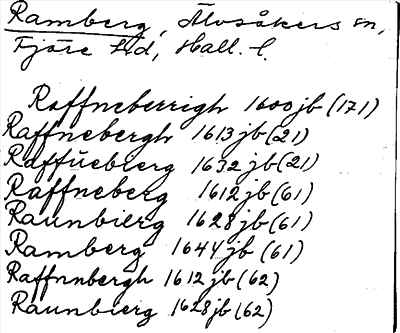 Ramberg, Älvsåkers sn,
Fjäre hd, Hall. l.
Raffneberrigh 1600 jb (171)
Raffnebergh 1613 jb (21)
Raffüebierg 1632 jb (21)
Raffneberg 1612 jb (61)
Raunbierg 1628 jb (61)
Ramberg 1644 jb (61)
Raffnnbergh 1612 jb (62)
Raunbierg 1628 jb (62)